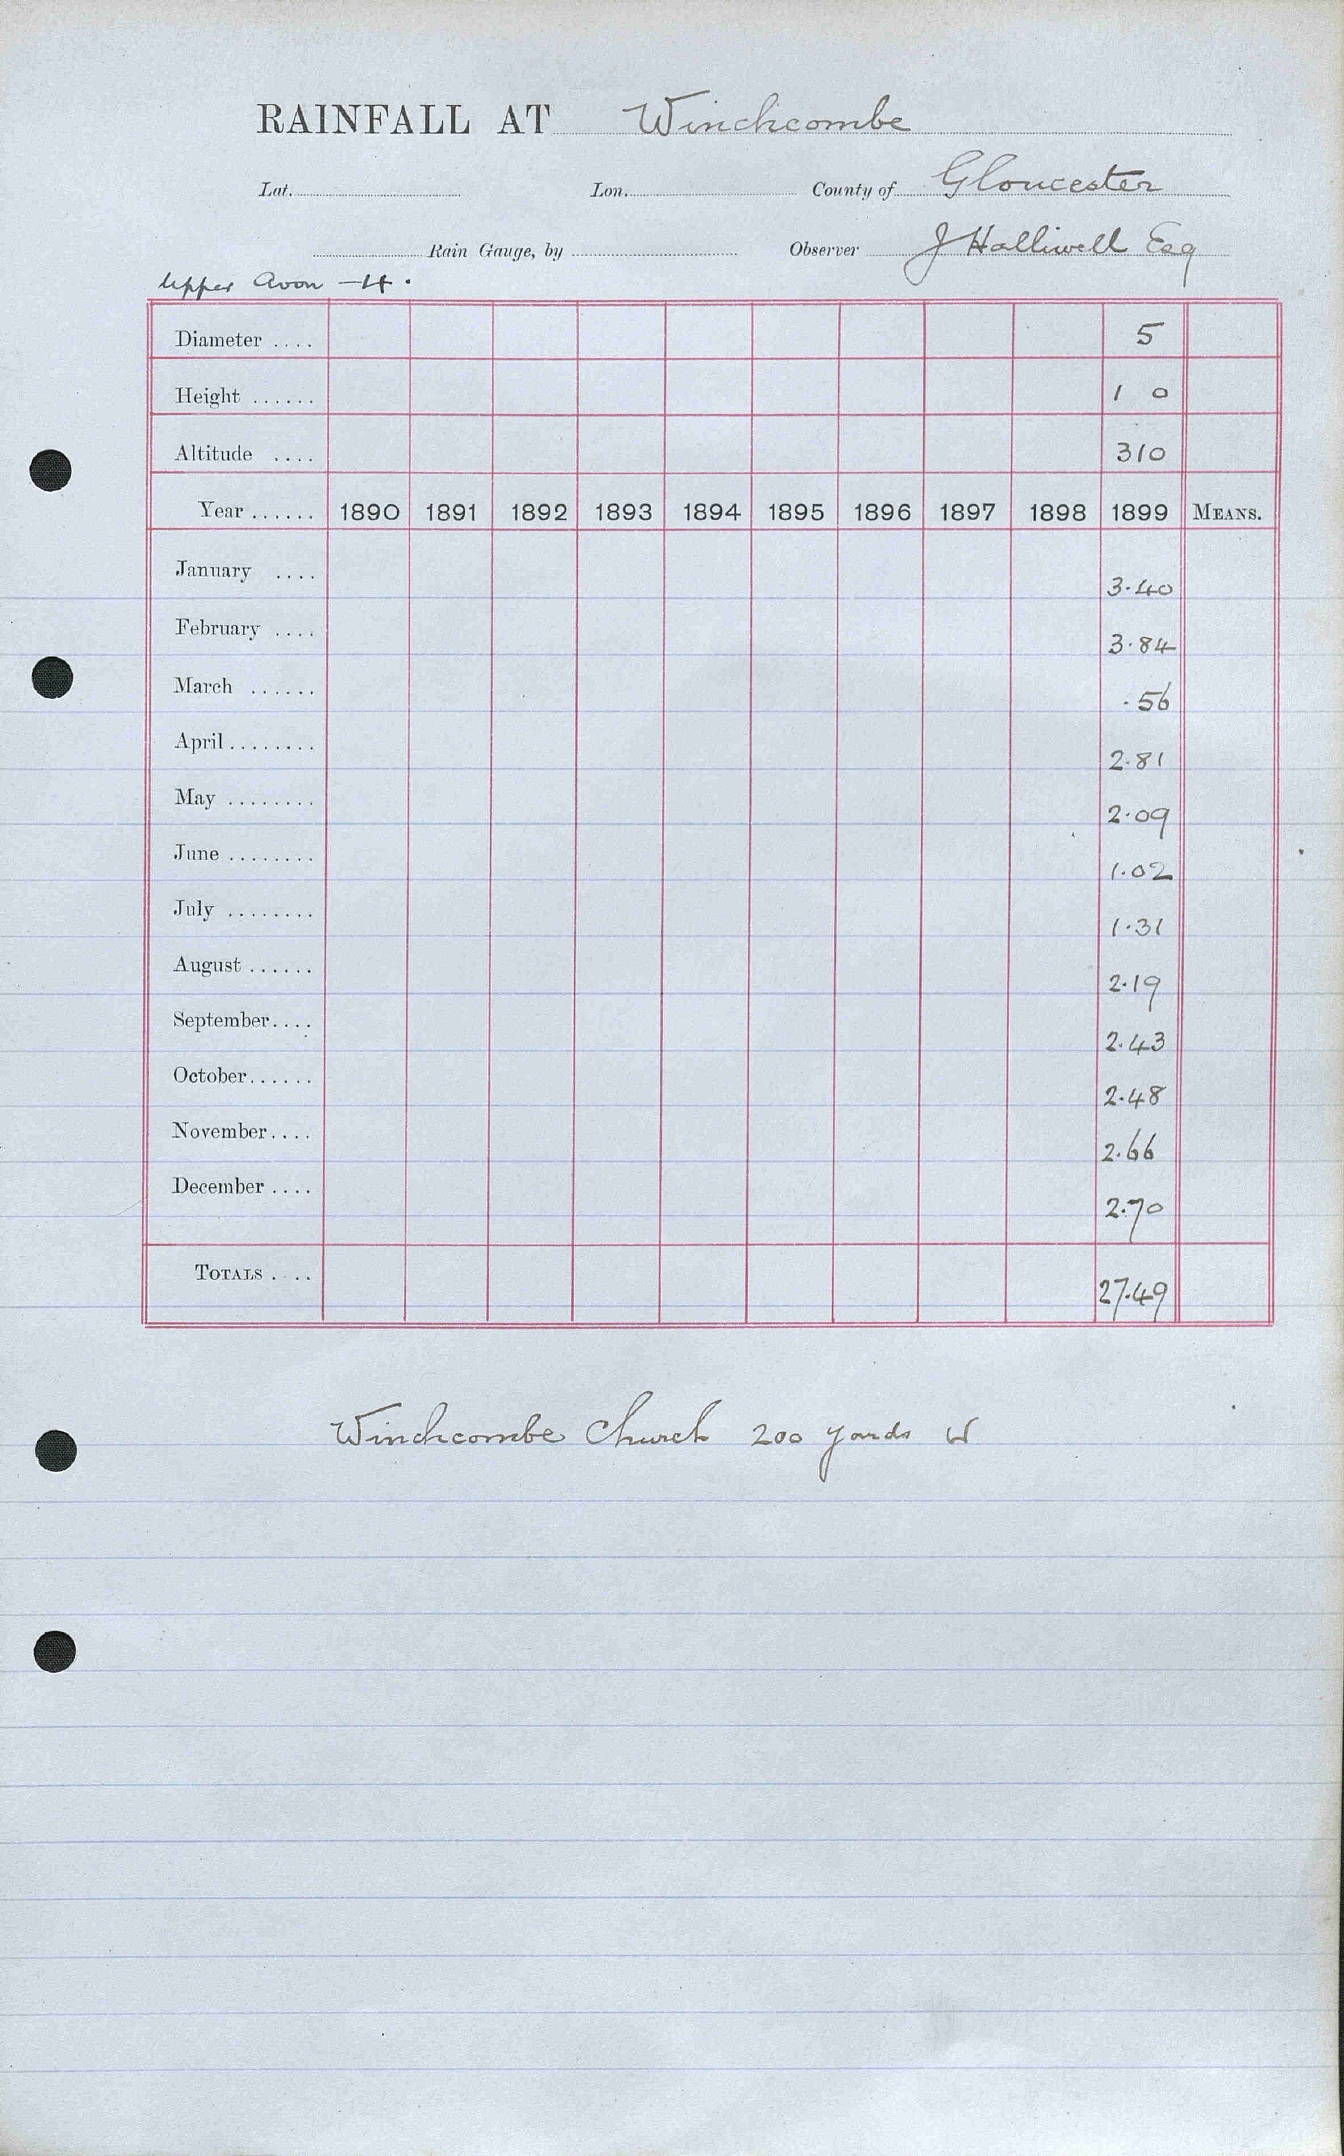 RAINFALL AT Winchcombe
Lat. Lon. County of Gloucester
Rain Gauge, by Observer J Halliwell Esq
Upper Avon – 4.
Diameter .... 5
Height ...... 1 0
Altitude .... 310
Year ...... 1890 1891 1892 1893 1894 1895 1896 1897 1898 1899 MEANS.
January .... 3.40
February .... 3.84
March ...... .56
April ........ 2.81
May ........ 2.09
June ........ 1.02
July ........ 1.31
August ...... 2.19
September.... 2.43
October...... 2.48
November.... 2.66
December .... 2.70
TOTALS .... 27.49
Winchcombe Church 200 yards W